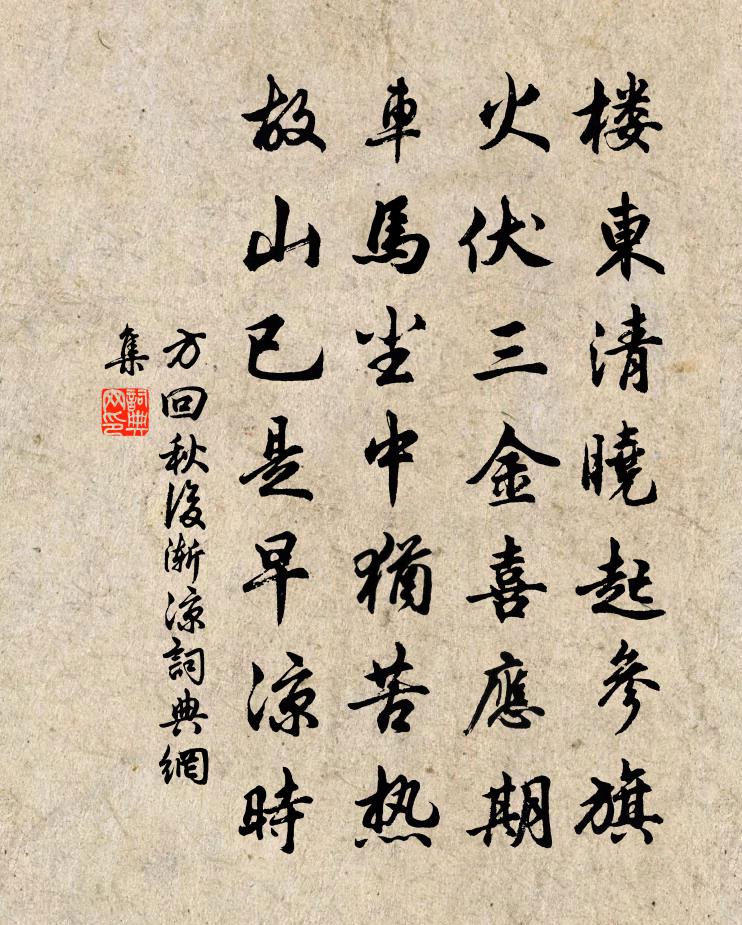 楼東清曉起參旗
火伏三金喜應期
車馬尘中猶苦热
故山已是早凉時
方回秋後漸涼詞典網
集
詞典
网印